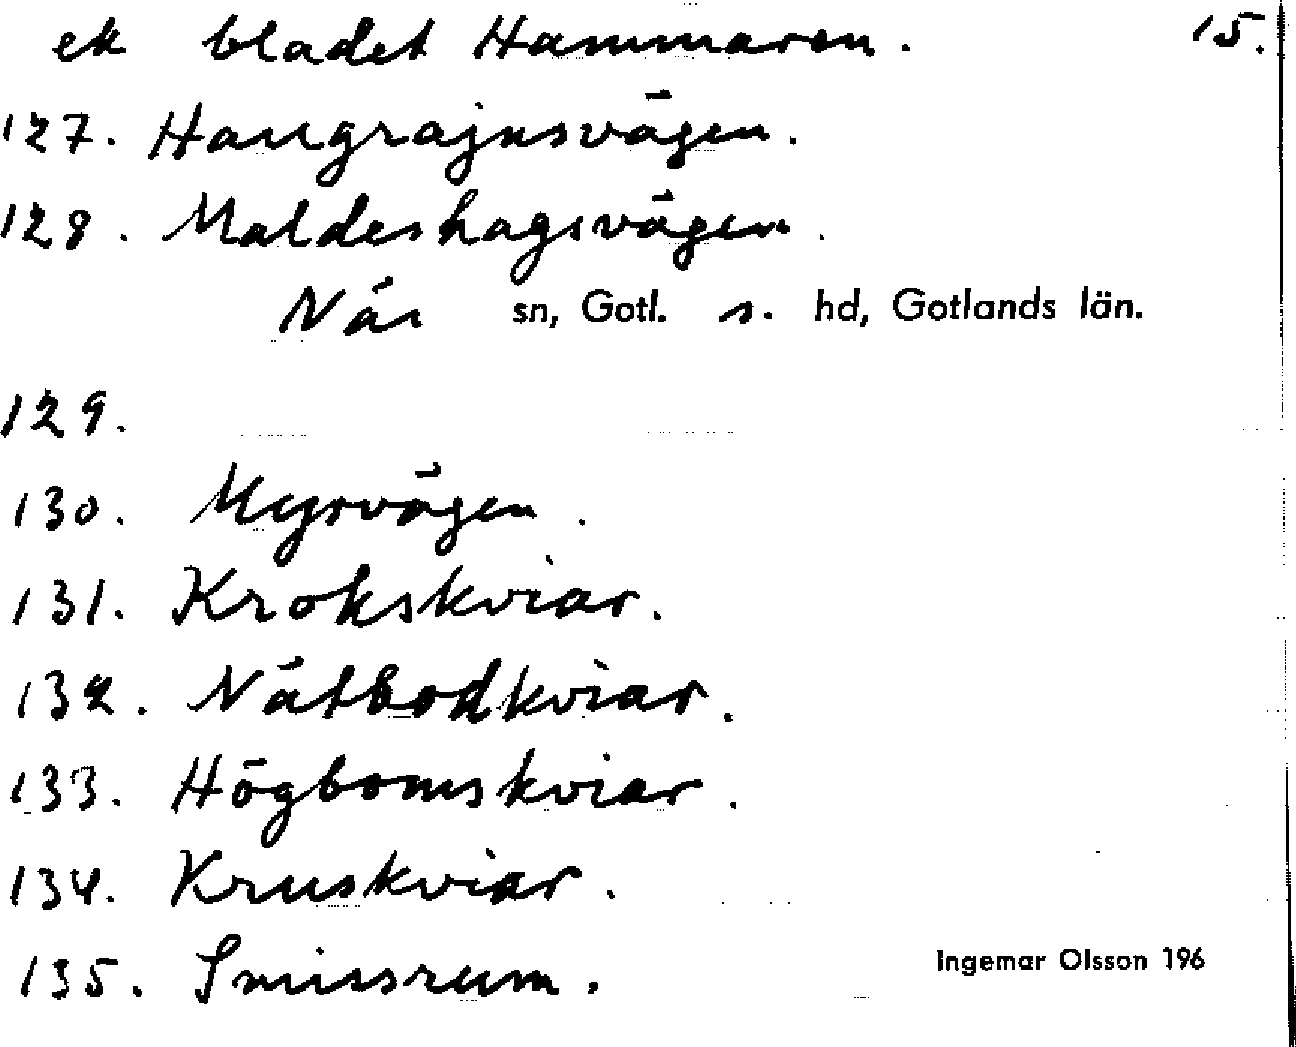 ek bladet Hammaren. 15.
127. Haugrajnsvägen.
128. Maldeshagsvägen.
När sn, Gotl. s. hd, Gotlands län.
129.
130. Myrvägen.
131. Krokskviar.
132. Nätbodkviar.
133. Högbomskviar.
134. Kruskviar.
135. Smissrum.
Ingemar Olsson 196